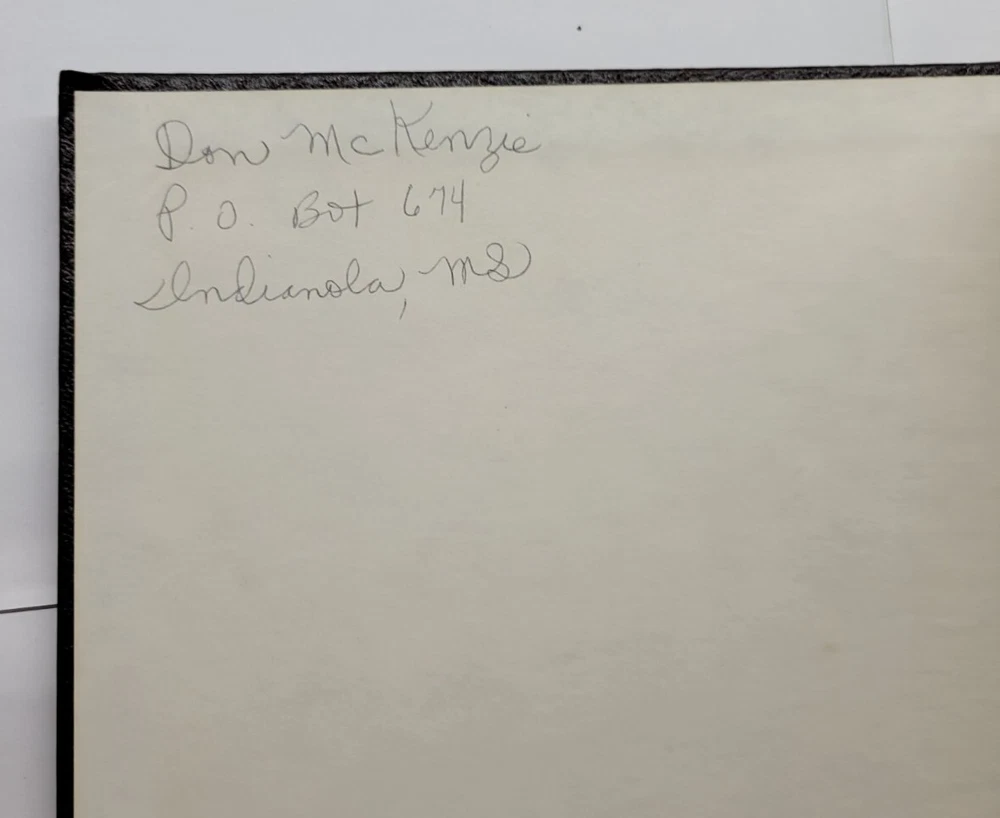 Don McKenzie
P. O. Box 674
Indianola, MS